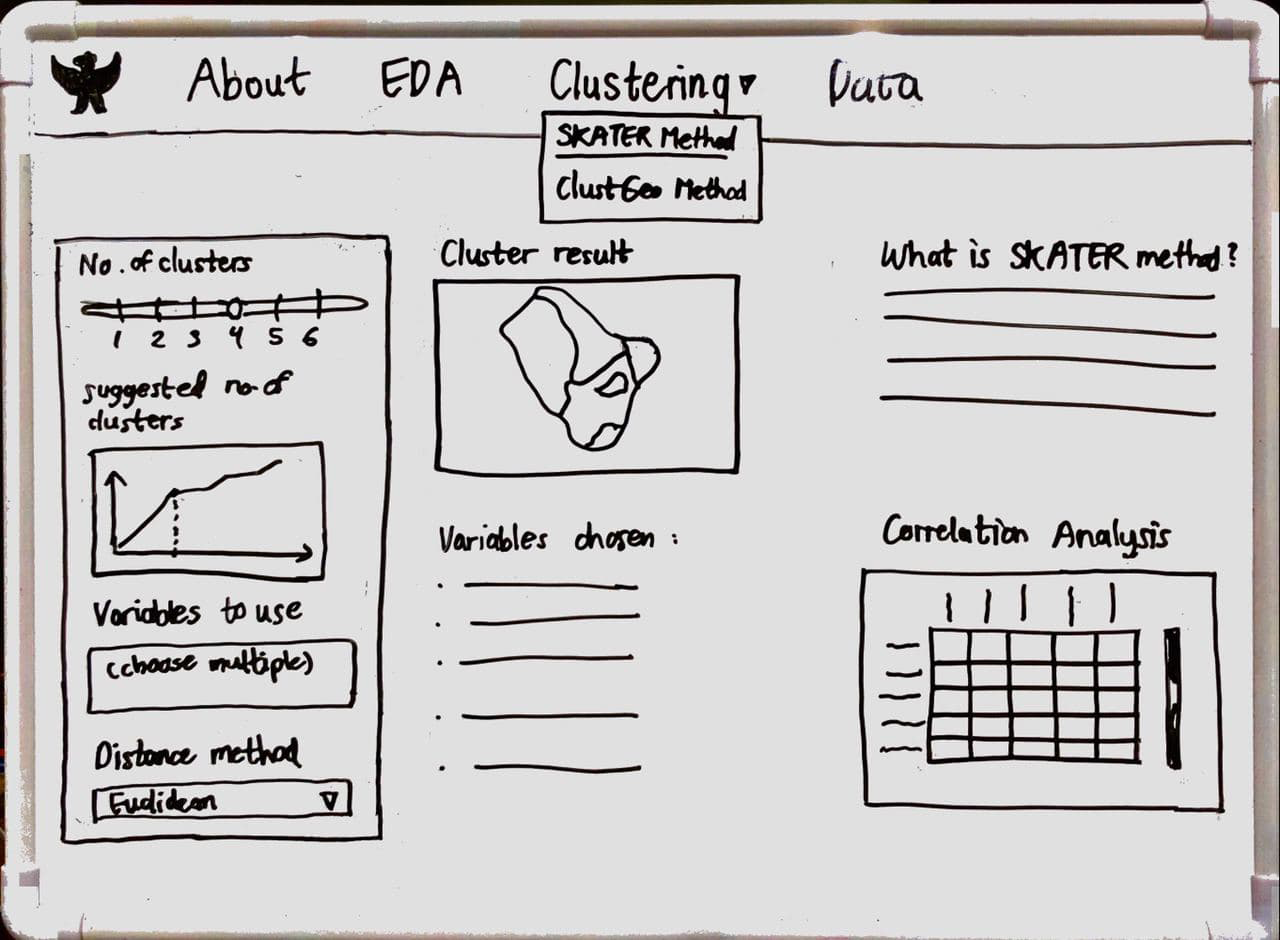 About EDA Clustering Data
SKATER Method
ClustGeo Method
No. of clusters
1 2 3 4 5 6
suggested no of
clusters
Variables to use
(choose multiple)
Distance method
Euclidean
Cluster result
Variables chosen :
What is SKATER method?
Correlation Analysis